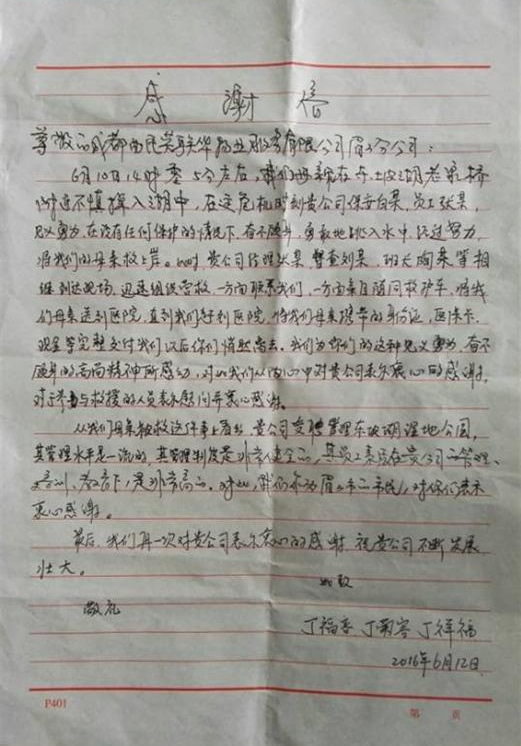 感谢信
尊敬的成都南民英联华物业服务有限公司眉山分公司：
6月10日14时零5分左右，我们母亲在东坡湖老泉桥
附近不慎掉入湖中，在这危机时刻贵公司保安白某，员工张某，
见义勇为，在没有任何保护的情况下，奋不顾身，勇敢地跳入水中，经过努力，
将我们的母亲救上岸。此时贵公司经理张某，督查刘某，班长陶某等相
继到达现场，迅速组织营救，一方面联系我们，一方面亲自随同救护车，将我
们母亲送到医院，直到我们到医院，将我们母亲携带的身份证，医保卡，
现金等完整交付我们以后你们悄然离去。我们为你们的这种见义勇为，奋不
顾身的高尚精神所感动，对此我们从内心中对贵公司表示衷心的感谢。
对于参与救援的人员表示慰问并衷心感谢。
从我们母亲被救这件事上看出，贵公司受聘管理东坡湖湿地公园，
其管理水平是一流的，其管理制度是非常健全的，其员工素质在贵公司的管理、
培训、教育下，是非常高的。对此，我们作为眉山市一市民，对你们表示
衷心感谢。
最后，我们再一次对贵公司表示衷心的感谢，祝贵公司不断发展
壮大。
此致
敬礼
丁福香 丁菊容 丁祥福
2016年6月12日
P401 第 页